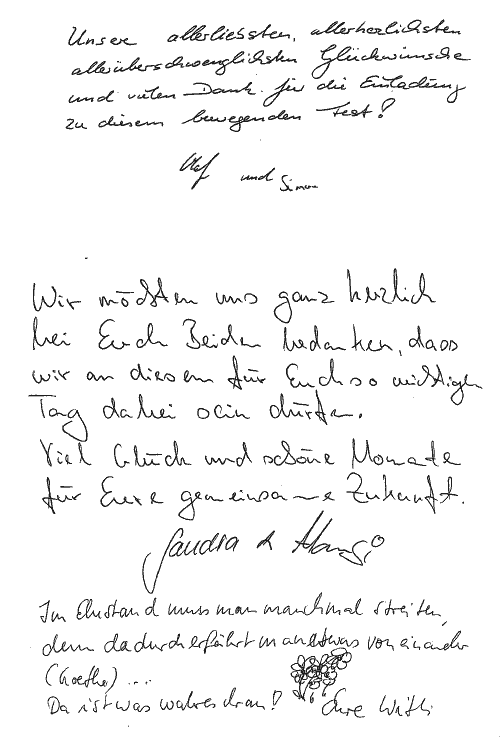 Unsere allerliebsten, allerherzlichsten
allerüberschwenglichsten Glückwünsche
und vielen Dank für die Einladung
zu diesem bewegenden Fest!
Olaf und Simone
Wir möchten uns ganz herzlich
bei Euch Beiden bedanken, dass
wir an diesem für Euch so wichtigen
Tag dabei sein dürfen.
Viel Glück und schöne Monate
für Eure gemeinsame Zukunft.
Sandra &
Im Ehestand muss man manchmal streiten,
denn dadurch erfährt man etwas voneinander
(Goethe) ...
Da ist was wahres dran! Eure Willi